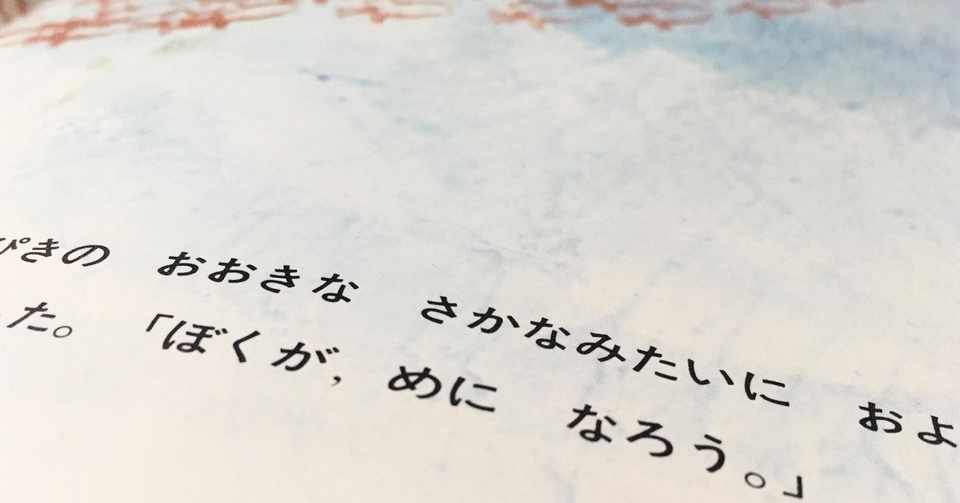 ぴきの おおきな さかなみたいに およ
た。 「ぼくが, めに なろう。」